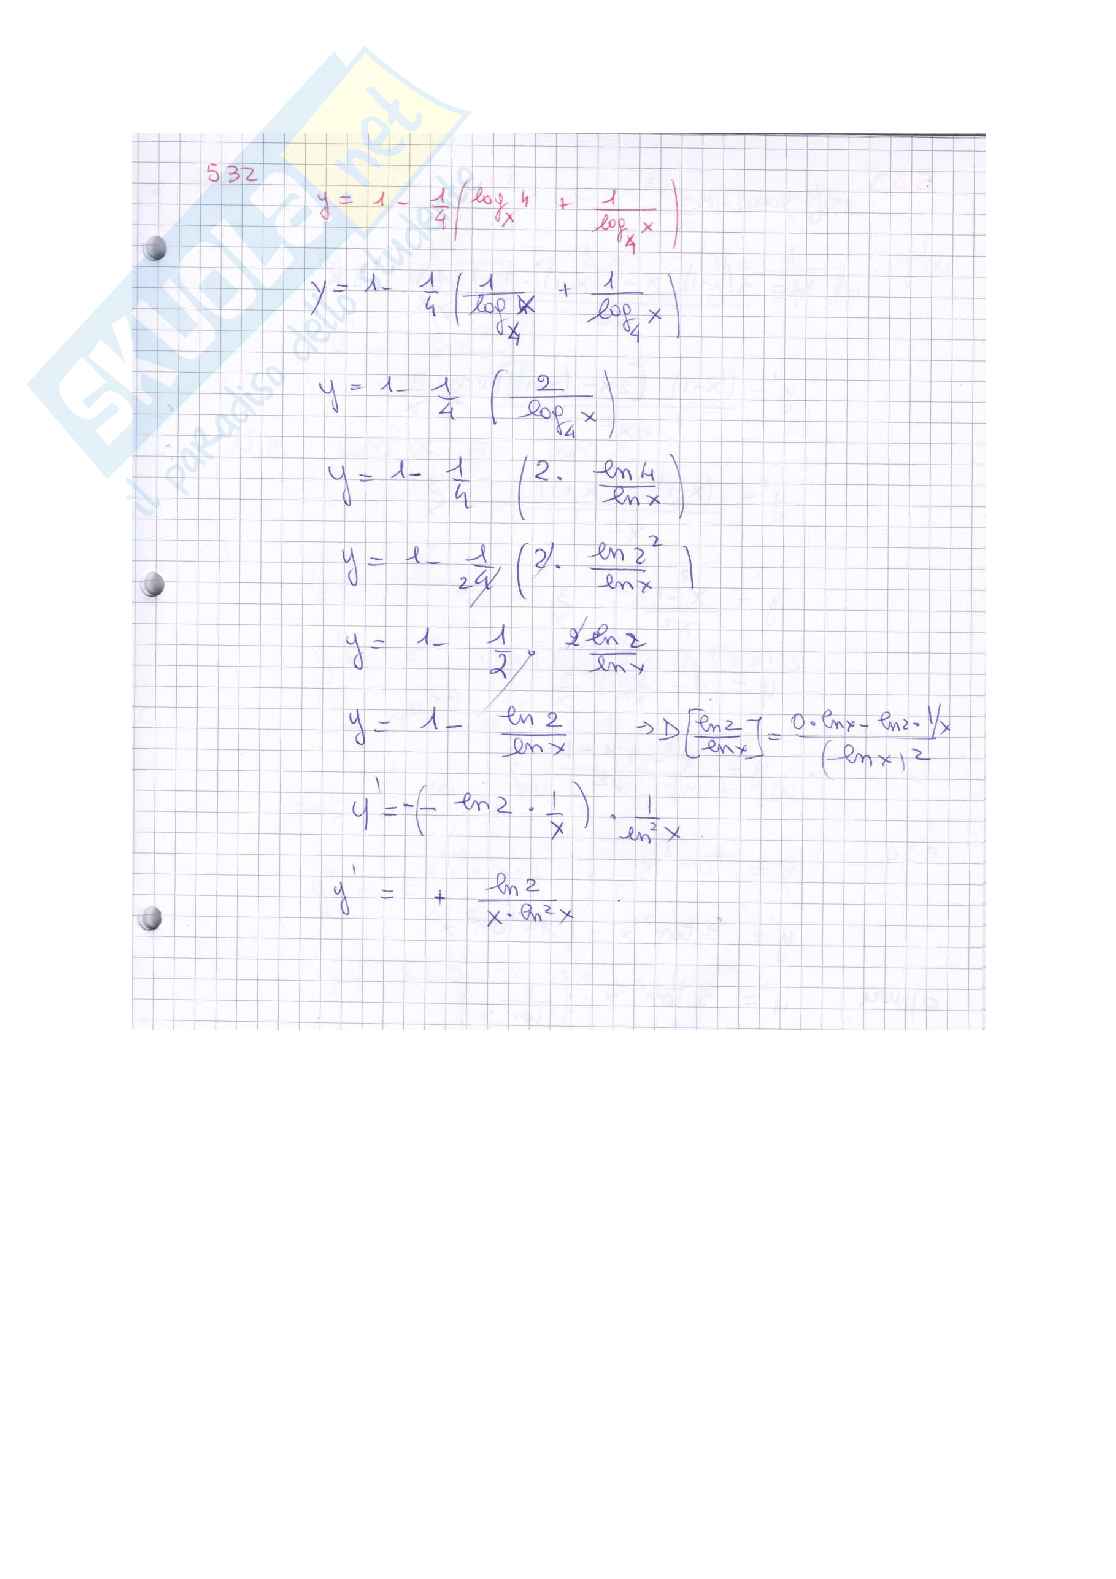 SKUOLA.net
il paradiso dello studente
532
y = 1 - 1/4 ( log_x 4 + 1/(log_4 x) )
y = 1 - 1/4 ( 1/(log_4 x) + 1/(log_4 x) )
y = 1 - 1/4 ( 2/(log_4 x) )
y = 1 - 1/4 ( 2 · ln 4/ln x )
y = 1 - 1/24 ( 2 · ln 2²/ln x )
y = 1 - 1/2 · 2 ln 2/ln x
y = 1 - ln 2/ln x → D [ ln 2/ln x ] = (0 · ln x - ln 2 · 1/x)/(ln x)²
y' = - ( - ln 2 · 1/x ) · 1/(ln² x)
y' = + ln 2/(x · ln² x)